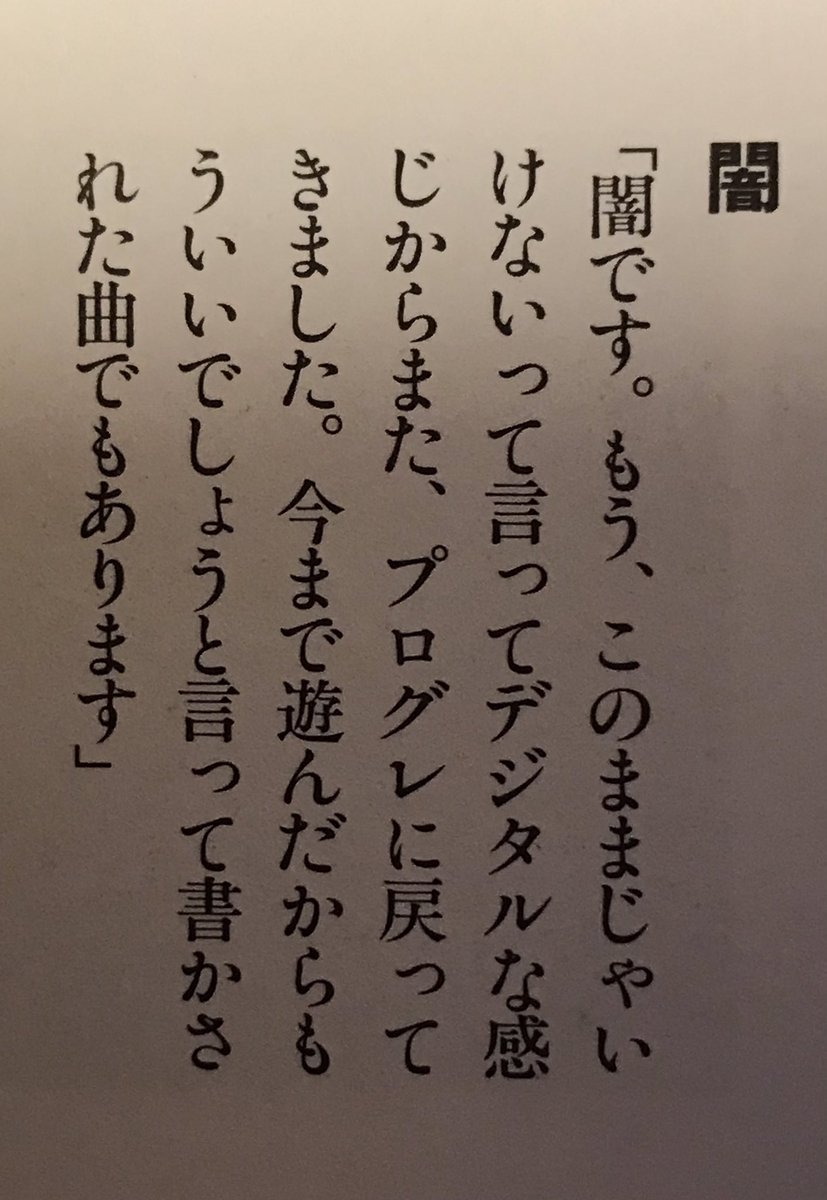 闇
「闇です。もう、このままじゃい
けないって言ってデジタルな感
じからまた、プログレに戻って
きました。今まで遊んだからも
ういいでしょうと言って書かさ
れた曲でもあります」